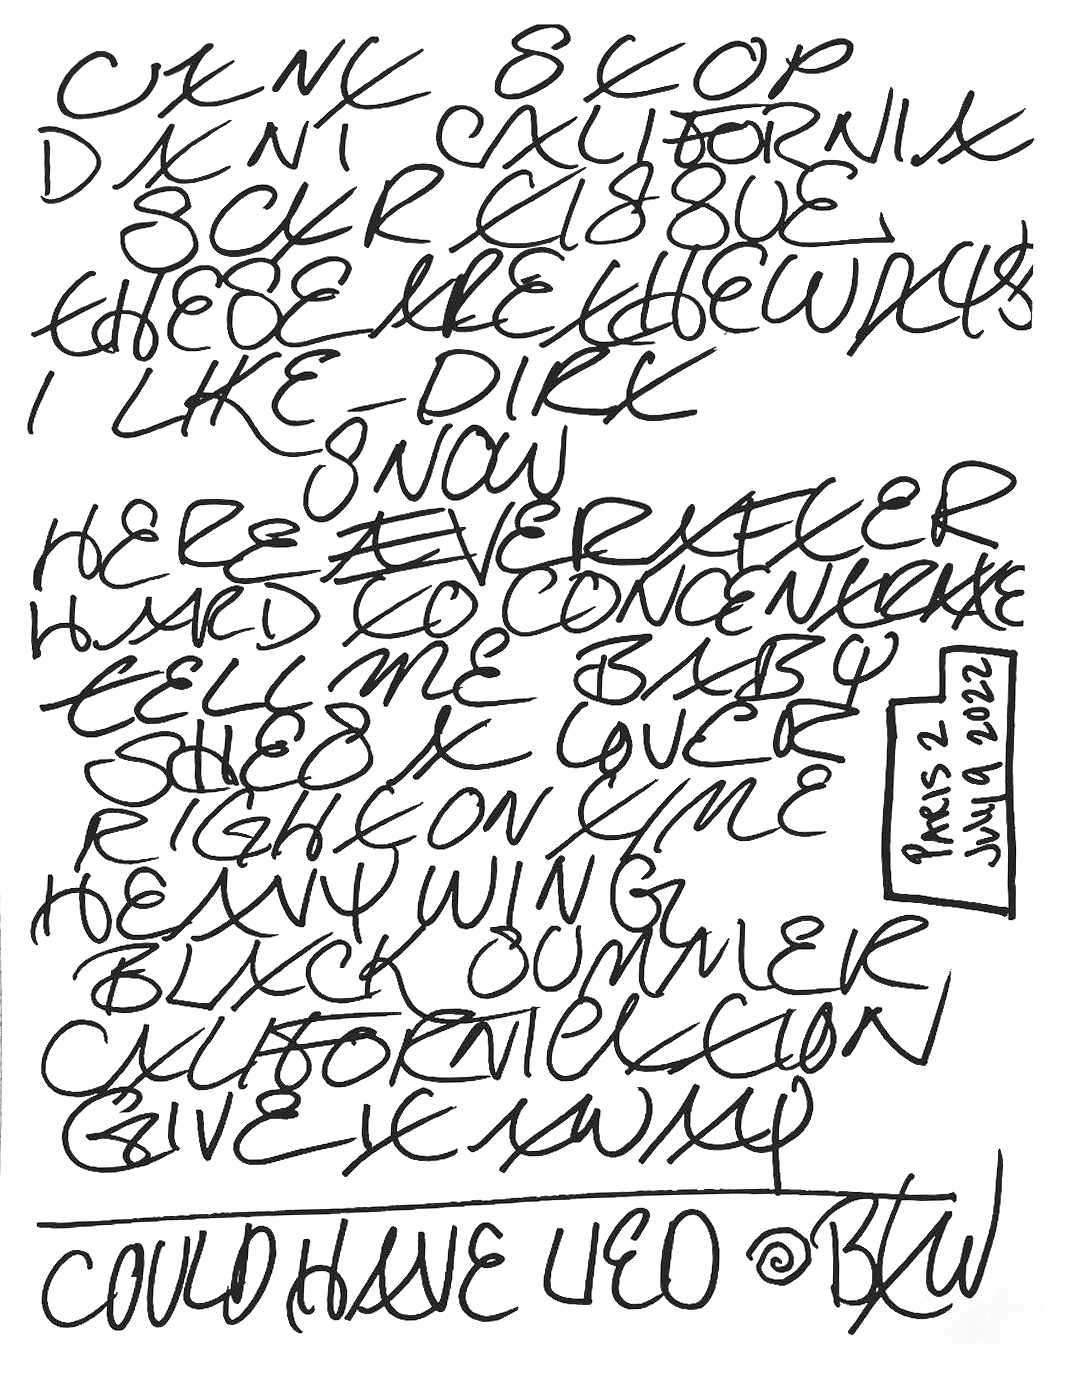 CAN'T STOP
DANI CALIFORNIA
SCAR TISSUE
THESE ARE THE WAYS
I LIKE DIRT
SNOW
HERE EVER AFTER
HARD TO CONCENTRATE
TELL ME BABY
SHES A LOVER
RIGHT ON TIME
HEAVY WING
BLACK SUMMER
CALIFORNICATION
GIVE IT AWAY
COULD HAVE LIED BTW
PARIS 2
July 9 2022